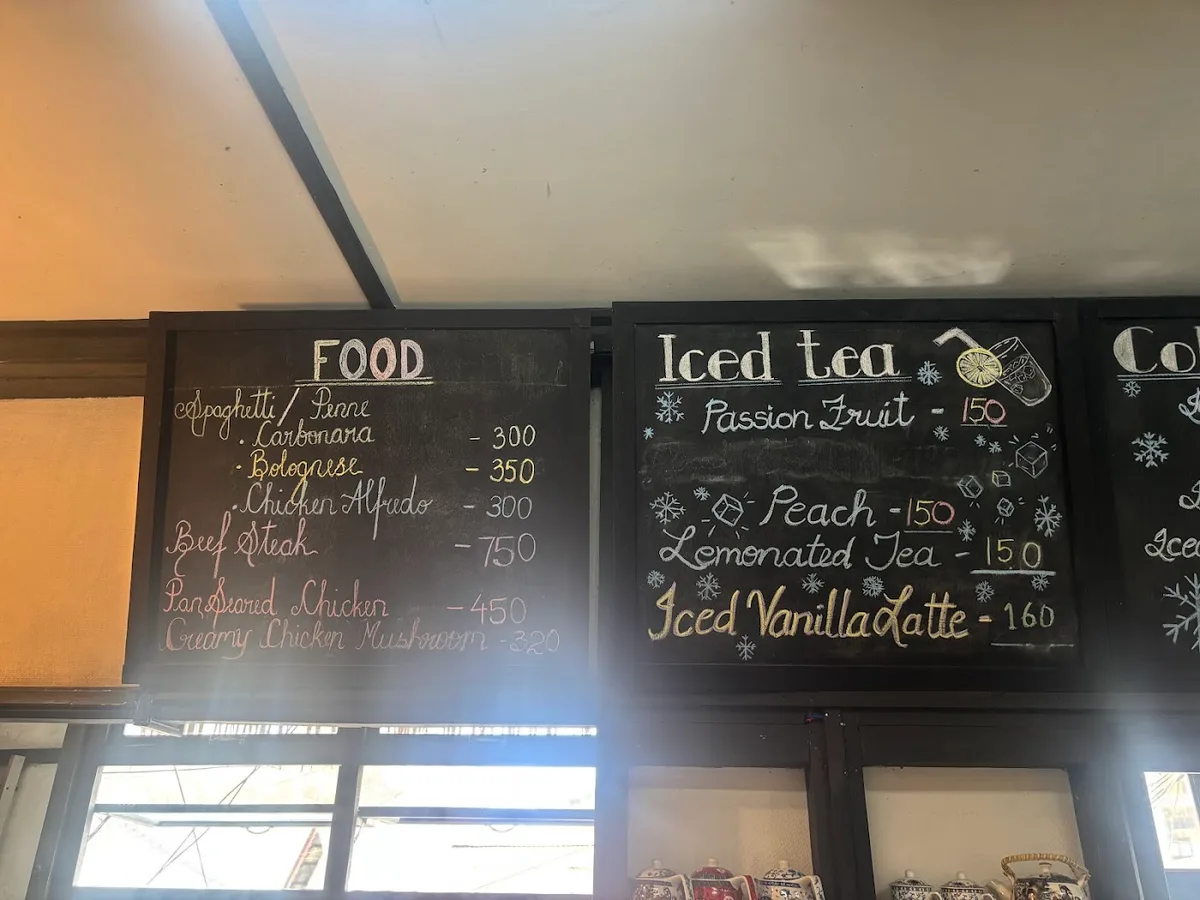 FOOD
Spaghetti / Penne
. Carbonara - 300
. Bolognese - 350
. Chicken Alfredo - 300
Beef Steak - 750
Pan Seared Chicken - 450
Creamy Chicken Mushroom - 320
Iced tea
Passion Fruit - 150
Peach - 150
Lemonated Tea - 150
Iced Vanilla Latte - 160
Iced